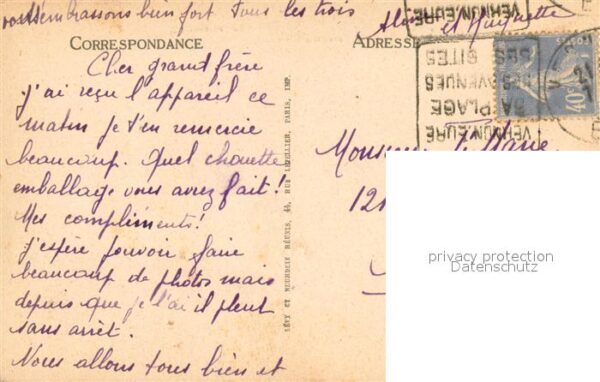 embrassons bien fort tous les trois
et
CORRESPONDANCE
ADRESSE
Cher grand frère
J'ai reçu l'appareil ce
matin je t'en remercie
beaucoup. Quel chouette
emballage vous avez fait!
Mes compliments!
J'espère pouvoir faire
beaucoup de photos mais
depuis que je l'ai il pleut
sans arrêt.
Nous allons tous bien et
LÉVY ET NEURDEIN RÉUNIS, 44, RUE LETELLIER, PARIS, IMP.
VERNON.EURE
SES SITES
SES AVENUES
SA PLAGE
VERNON.EURE
40c
21
Monsieur
121
privacy protection
Datenschutz